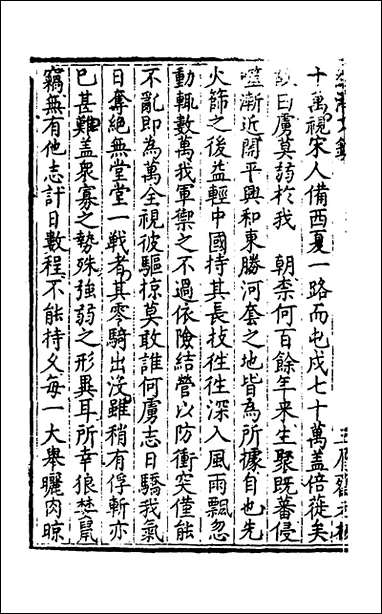 十萬視宋人備西夏一路而屯戍七十萬蓋倍蓰矣
故曰虜莫弱於我　朝柰何百餘年来生聚既蕃侵
噬漸近開平興和東勝河套之地皆為所據自也先
火篩之後益輕中國持其長技徃徃深入風雨飄忽
動輒數萬我軍禦之不過依險結營以防衝突僅能
不亂即為萬全視彼驅掠莫敢誰何虜志日驕我氣
日奪絕無堂堂一戰者其零騎出没雖稍有俘斬亦
已甚難蓋衆寡之勢殊強弱之形異耳所幸狼奔鼠
竊無有他志計日數程不能持久每一大舉曬肉晾